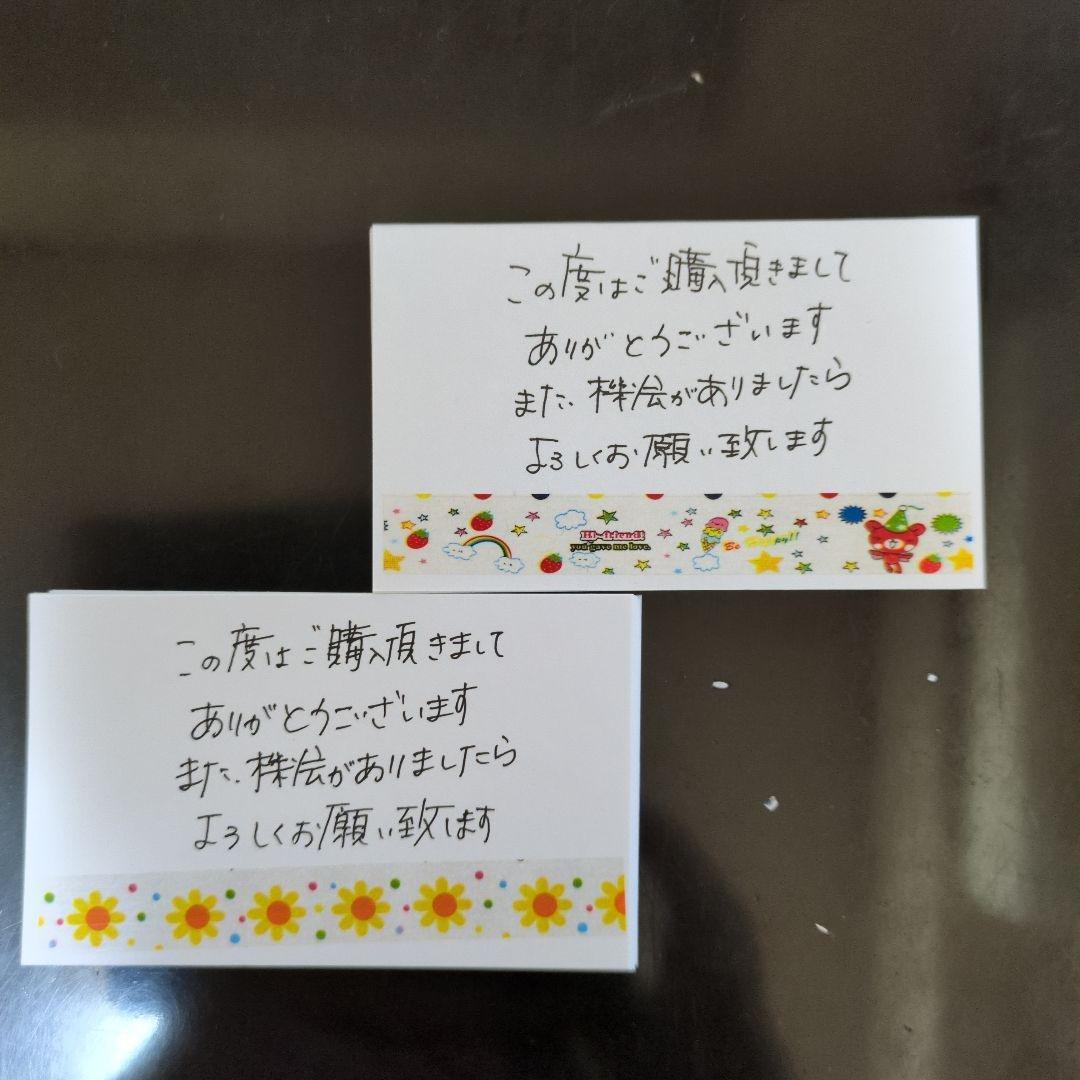 この度はご購入頂きまして
ありがとうございます
また、機会がありましたら
よろしくお願い致します
Hi~friend!
you gave me love.
Be Happy!!
この度はご購入頂きまして
ありがとうございます
また、株会がありましたら
よろしくお願い致します